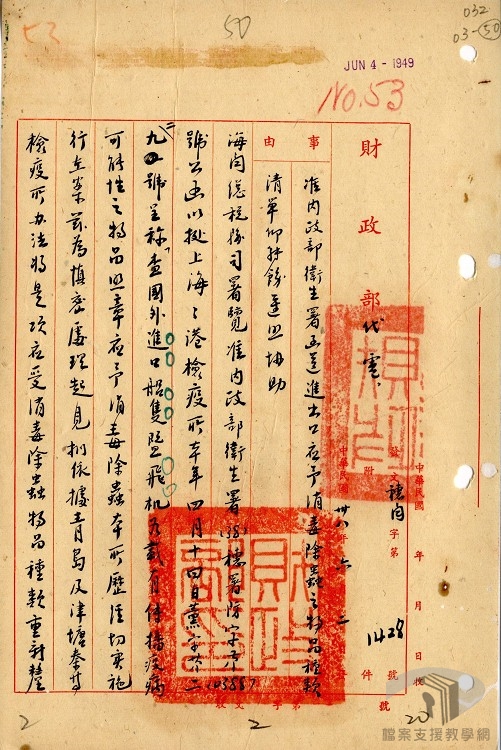 032
03-50
50
53
JUN 4 - 1949
No.53
財政部代電
事由
准內政部衛生署函送進出口應予消毒除蟲之物品種類
清單仰轉飭遵照協助
發文穗關字第1428號
附件
中華民國卅八年六月二日發
中華民國 年 月 日收
字第 號
海關總稅務司署覽准內政部衛生署(38)穗署防字第
號公函以據上海海港檢疫所本年四月十四日薰字第二
九四號呈稱「查國外進口船隻暨飛机多載有傳播疫病
可能性之物品照章應予消毒除蟲本所歷經切實施
行在案茲為慎密處理起見擬依據青島及津塘秦等
檢疫所办法將是項應受消毒除蟲物品種類重新釐
2
2
20
檔案支援教學網